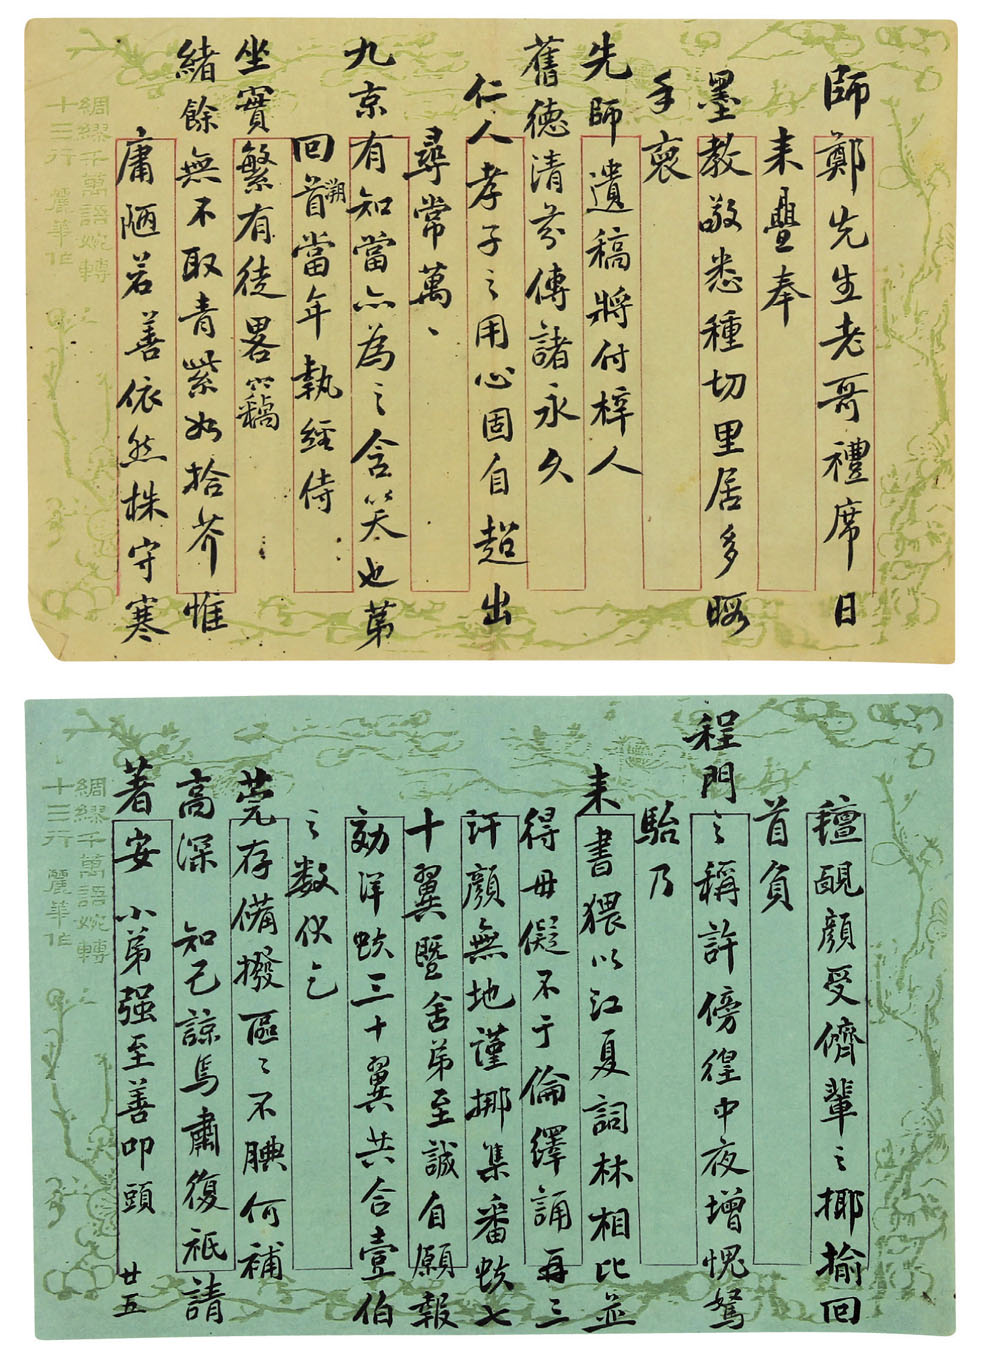 師鄭先生老哥禮席日
來疊奉
墨教敬悉種切里居多暇
手裒
先師遺稿將付梓人
舊德清芬傳諸永久
仁人孝子之用心固自超出
尋常萬、
九京有知當亦為之含笑也第
回首朔當年執經侍
坐實繁有徒畧
緒餘無不取青紫如拾芥惟
庸陋若善依然株守寒
綢繆千萬語婉轉
十三行 麗華作
氊靦顏受儕輩之揶揄回
首負
程門之稱許傍徨中夜增愧駑
駘乃
來書猥以江夏詞林相比並
得毋儗不于倫繹誦再三
汗顏無地謹挪集番蚨七
十翼暨舍弟至誠自願報
効洋蚨三十翼共合壹伯
之數伏乞
莞存備撥區區不腆何補
高深 知己諒焉肅復祇請
著安 小弟强至善叩頭 廿五
綢繆千萬語婉轉
十三行 麗華作